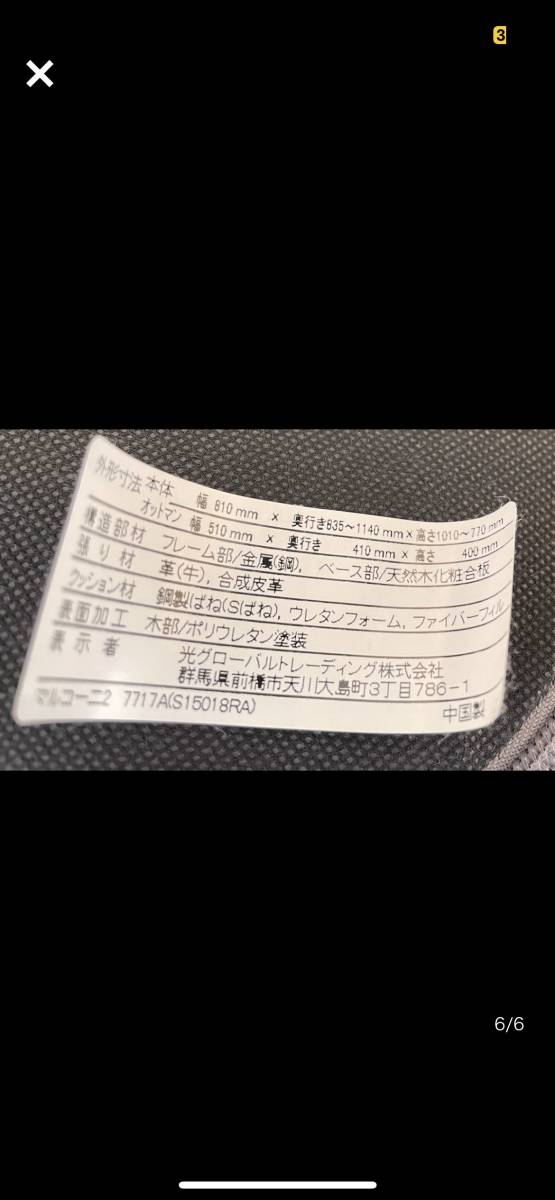 3
外形寸法 本体 幅 810 mm × 奥行き835～1140 mm × 高さ1010～770 mm
オットマン 幅 510 mm × 奥行き 410 mm × 高さ 400 mm
構造部材 フレーム部/金属(鋼), ベース部/天然木化粧合板
張り材 革(牛), 合成皮革
クッション材 鋼製ばね(Sばね), ウレタンフォーム, ファイバーフィル
表面加工 木部/ポリウレタン塗装
表示者 光グローバルトレーディング株式会社
群馬県前橋市天川大島町3丁目786-1
マルコーニ2 7717A(S15018RA) 中国製
6/6